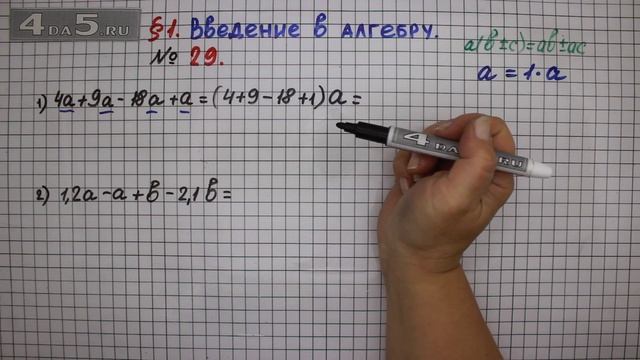 4DA5.RU
§1. Введение в алгебру.
№ 29.
a(b±c)=ab±ac
a=1·a
1) 4a+9a-18a+a=(4+9-18+1)a=
2) 1,2a-a+b-2,1b=
4DA5.RU